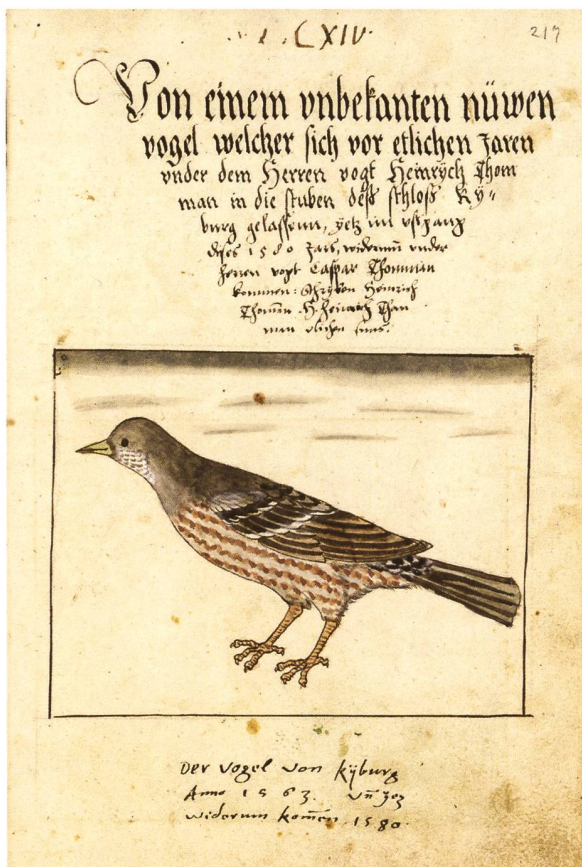 CXIV.
217
Von einem vnbekanten nüwen
vogel welcher sich vor etlichen Jaren
vnder dem Herren vogt Heinrych Thom
man in die stuben deß schloß Ky-
burg gelassenn, yetz im vßgang
dises 1580 Jars, widerumb vnder
herren vogt Caspar Thomman
kommen: Heinrich
man
Der Vogel von Kyburg
Anno 1563. vn̄ yez
widerum kom̄en 1580.